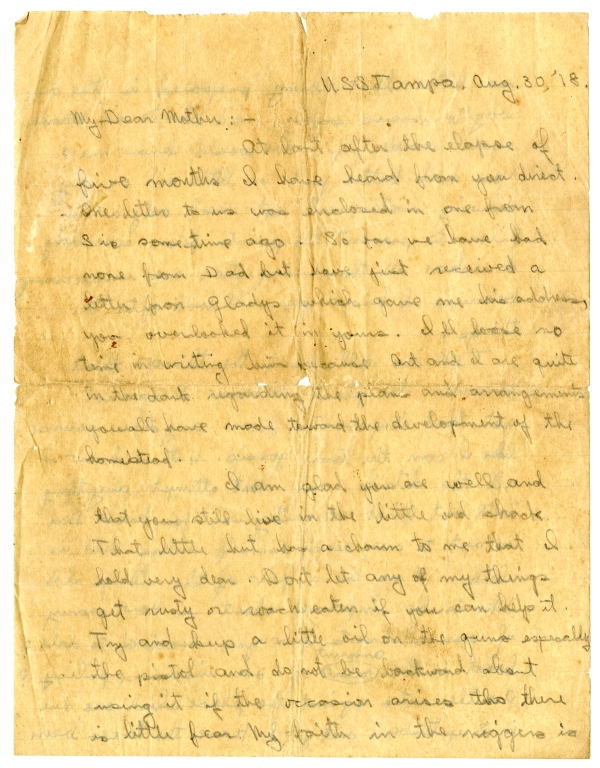 USS Tampa. Aug. 30, '18.
My Dear Mother: -
At last after the elapse of
five months I have heard from you direct.
One letter to us was enclosed in one from
Sis some time ago. So far we have had
none from Dad but have just received a
letter from Gladys which gave me his address,
you overlooked it in yours. I'll loose no
time in writing him because Art and I are quite
in the dark regarding the plans and arrangements
you all have made toward the development of the
homestead.
I am glad you are well and
that you still live in the little old shack.
That little hut has a charm to me that I
hold very dear. Don't let any of my things
get rusty or roach eaten if you can help it.
Try and keep a little oil on the guns especially
the pistol and do not be backward about
using it if the occasion arises tho there
is little fear. My faith in the niggers is